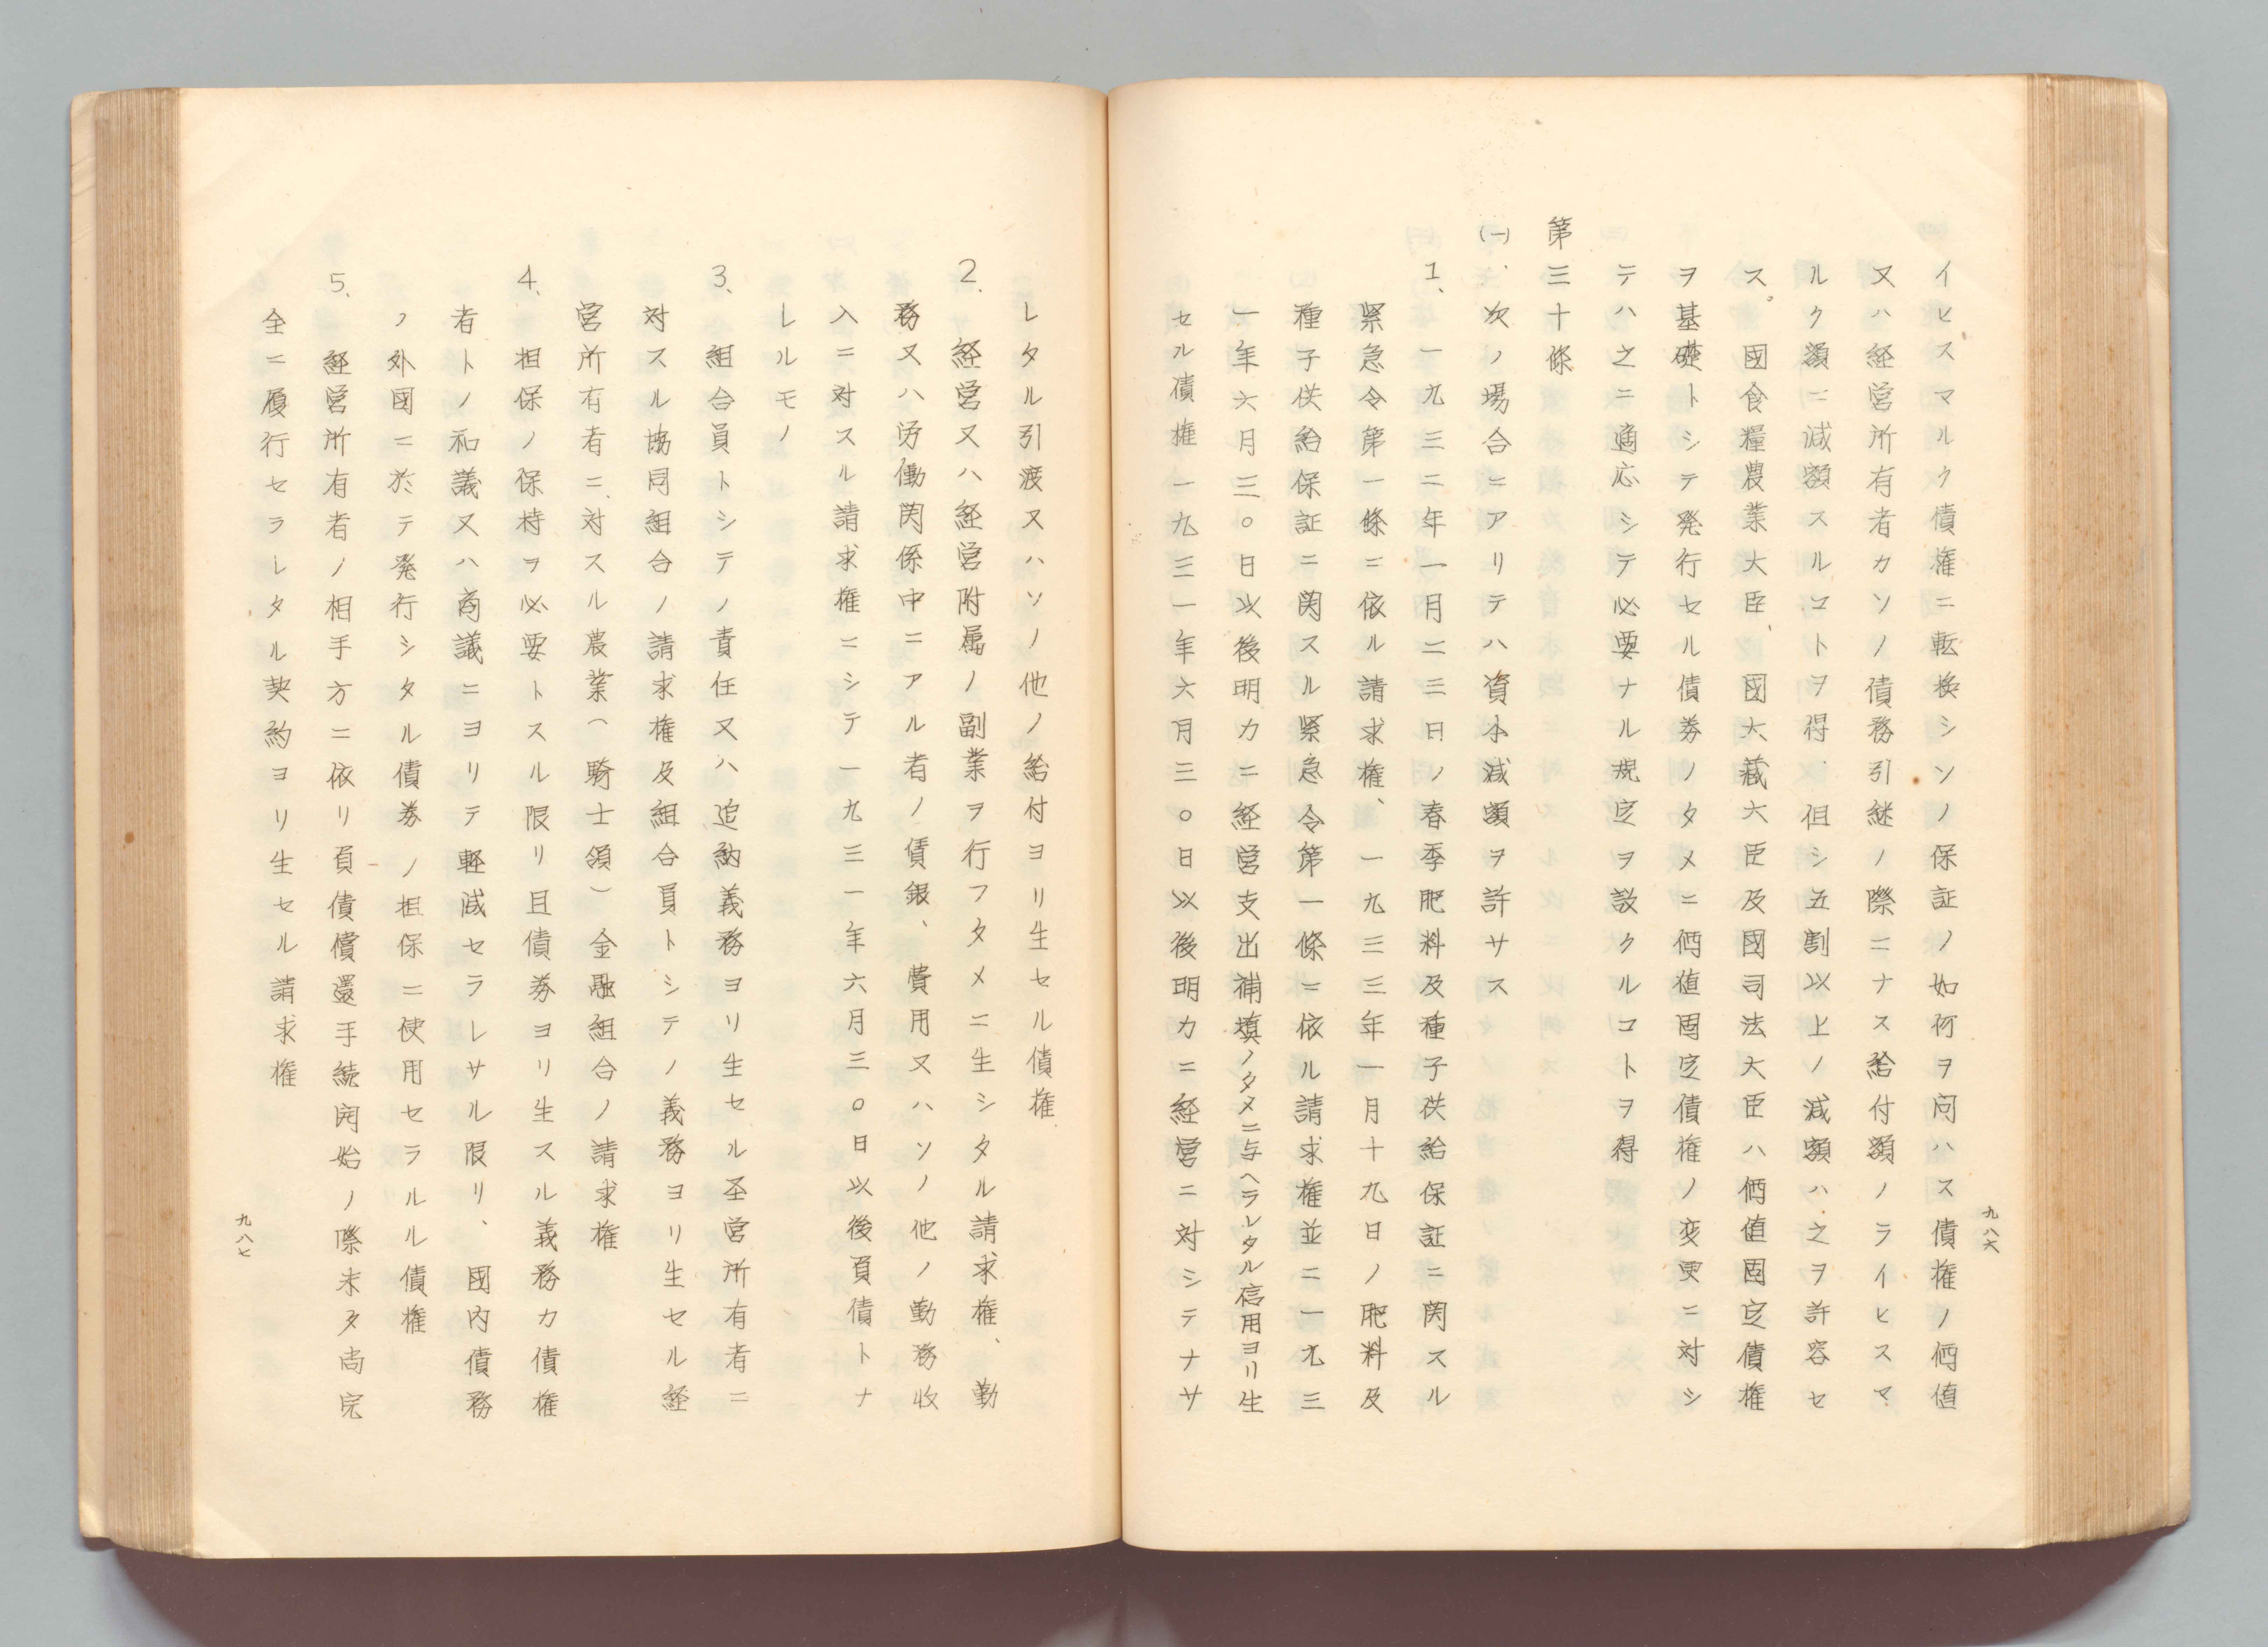 九八六
イヒスマルク債権ニ転換シソノ保証ノ如何ヲ問ハス債権ノ価値
又ハ経営所有者カソノ債務引継ノ際ニナス給付額ノライヒスマ
ルク額ニ減額スルコトヲ得、但シ五割以上ノ減額ハ之ヲ許容セ
ス。國食糧農業大臣、國大蔵大臣及國司法大臣ハ価値固定債権
ヲ基礎トシテ発行セル債券ノタメニ価値固定債権ノ変更ニ対シ
テハ之ニ適応シテ必要ナル規定ヲ設クルコトヲ得
第三十條
(一)、次ノ場合ニアリテハ資本減額ヲ許サス
1、一九三二年一月二三日ノ春季肥料及種子供給保証ニ関スル
緊急令第一條ニ依ル請求権、一九三三年一月十九日ノ肥料及
種子供給保証ニ関スル緊急令第一條ニ依ル請求権並ニ一九三
一年六月三〇日以後明カニ経営支出補填ノタメニ与ヘラレタル信用ヨリ生
セル債権一九三一年六月三〇日以後明カニ経営ニ対シテナサ
レタル引渡又ハソノ他ノ給付ヨリ生セル債権
2、経営又ハ経営附属ノ副業ヲ行フタメニ生シタル請求権、勤
務又ハ労働関係中ニアル者ノ賃銀、費用又ハソノ他ノ勤務収
入ニ対スル請求権ニシテ一九三一年六月三〇日以後負債トナ
レルモノ
3、組合員トシテノ責任又ハ追納義務ヨリ生セル圣営所有者ニ
対スル協同組合ノ請求権及組合員トシテノ義務ヨリ生セル経
営所有者ニ対スル農業(騎士領)金融組合ノ請求権
4、担保ノ保持ヲ必要トスル限リ且債券ヨリ生スル義務カ債権
者トノ和議又ハ商議ニヨリテ軽減セラレサル限リ、國内債務
ノ外國ニ於テ発行シタル債券ノ担保ニ使用セラルル債権
5、経営所有者ノ相手方ニ依リ負債償還手続開始ノ際未タ尚完
全ニ履行セラレタル契約ヨリ生セル請求権
九八七